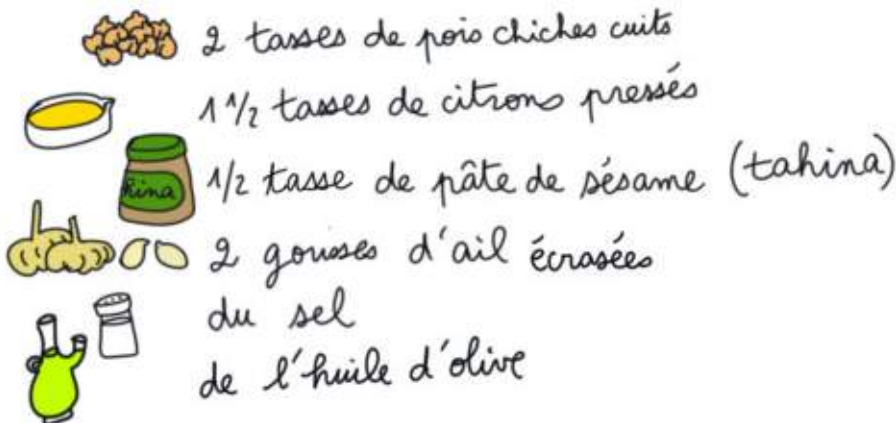 2 tasses de pois chiches cuits
1 1/2 tasses de citrons pressés
hina
1/2 tasse de pâte de sésame (tahina)
2 gousses d'ail écrasées
du sel
de l'huile d'olive